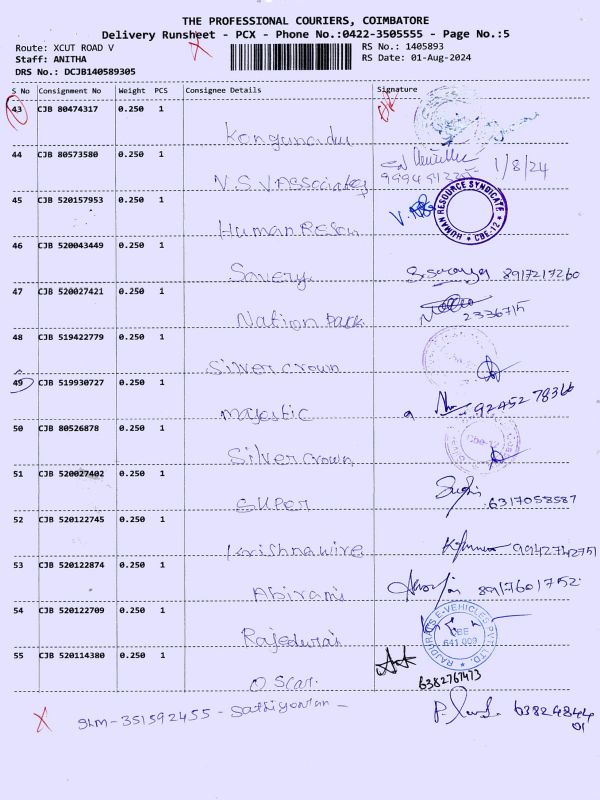 THE PROFESSIONAL COURIERS, COIMBATORE
Delivery Runsheet - PCX - Phone No.:0422-3505555 - Page No.:5
Route: XCUT ROAD V RS No.: 1405893
Staff: ANITHA RS Date: 01-Aug-2024
DRS No.: DCJB140589305
S No Consignment No Weight PCS Consignee Details Signature
43 CJB 80474317 0.250 1
Kongunadu
44 CJB 80573580 0.250 1
V.S.V.Associates 1/8/24
45 CJB 520157953 0.250 1
Human Reson HUMAN RESOURCE SYNDICATE ★ CBE-12 ★
46 CJB 520043449 0.250 1
Savery 8917217260
47 CJB 520027421 0.250 1
Nation Park 2336715
48 CJB 519422779 0.250 1
Silver crown
49 CJB 519930727 0.250 1
majestic 92452 78366
50 CJB 80526878 0.250 1
Silver crown
51 CJB 520027402 0.250 1
SUPER 6317058587
52 CJB 520122745 0.250 1
Krishnawire 9942742751
53 CJB 520122874 0.250 1
Abirami 8917601752
54 CJB 520122709 0.250 1
Rajedurai RAJDURAI'S E-VEHICLES PVT. LTD. CBE 641 009
55 CJB 520114380 0.250 1
Oscar. 6382767473
351592455 - Sathiyontan - 63824844
01